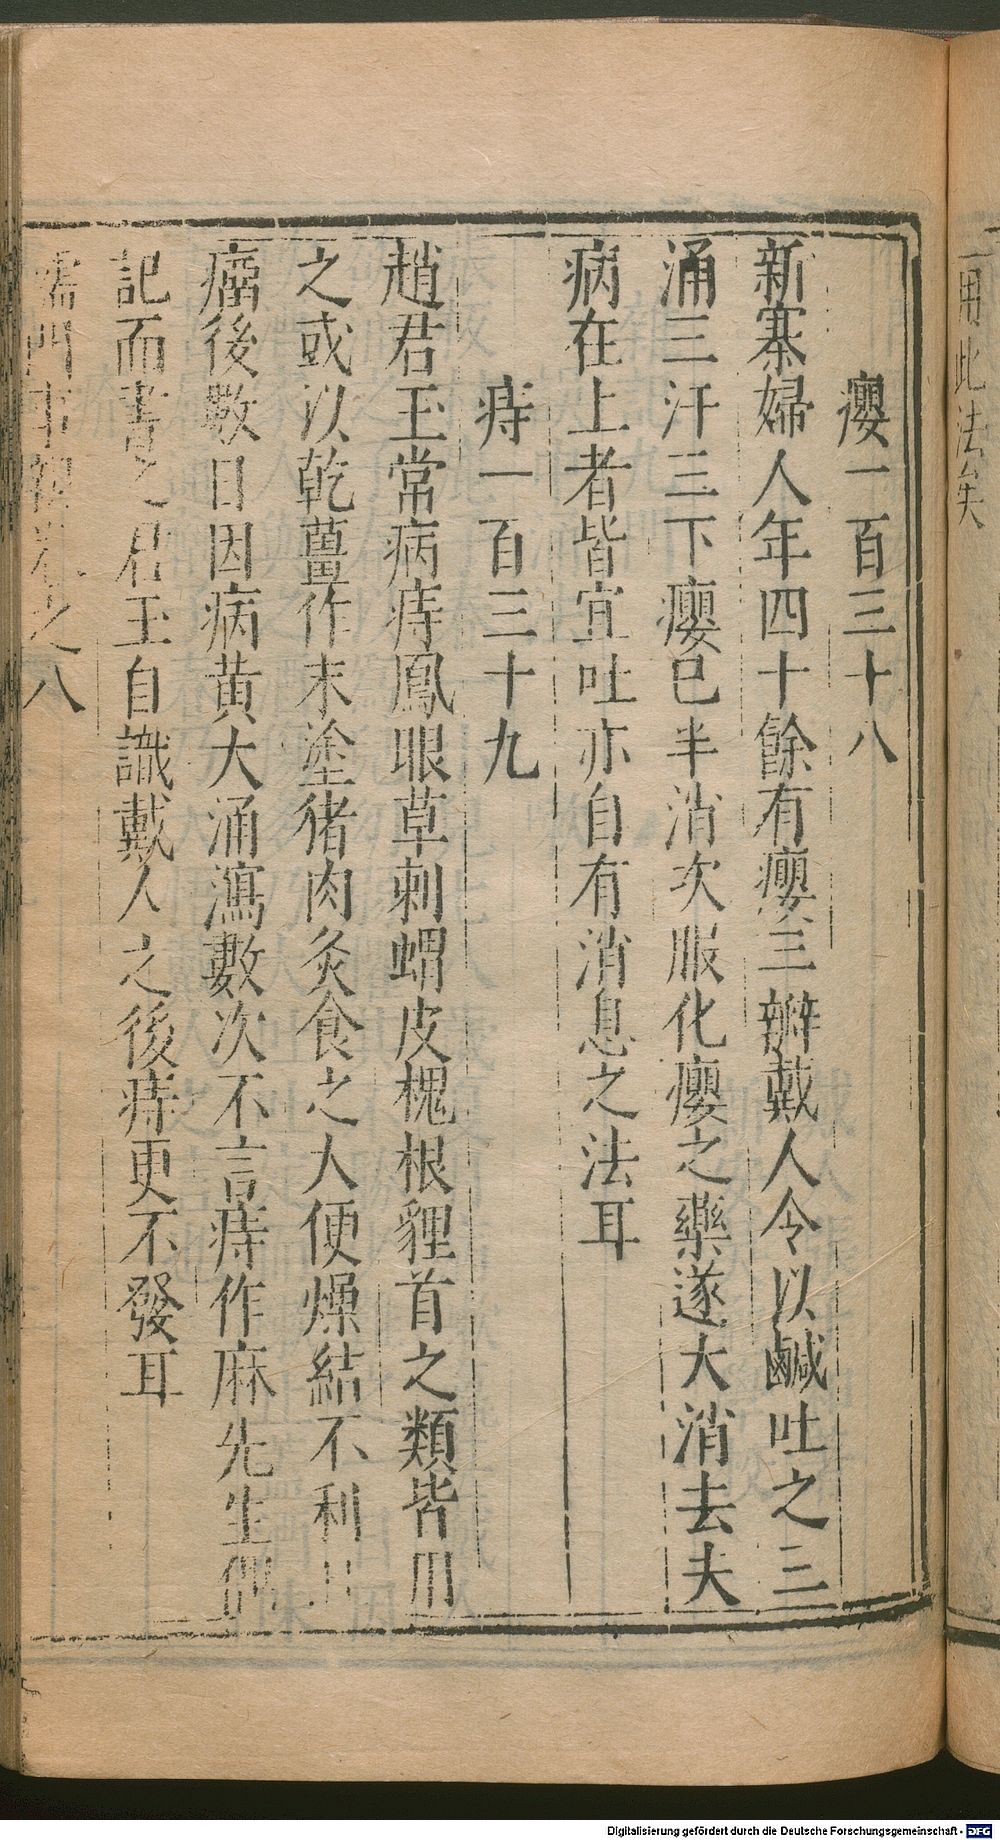 用此法矣
癭一百三十八
新寨婦人年四十餘有癭三瓣戴人令以鹹吐之三
涌三汗三下癭已半消次服化癭之藥遂大消去夫
病在上者皆宜吐亦自有消息之法耳
痔一百三十九
趙君玉常病痔鳳眼草刺蝟皮槐根貍首之類皆用
之或以乾薑作末塗猪肉炙食之大便燥結不利
痛後數日因病黄大涌瀉數次不言痔作麻先生偶
記而書之君玉自識戴人之後痔更不發耳
儒門事親卷之八
Digitalisierung gefördert durch die Deutsche Forschungsgemeinschaft - DFG